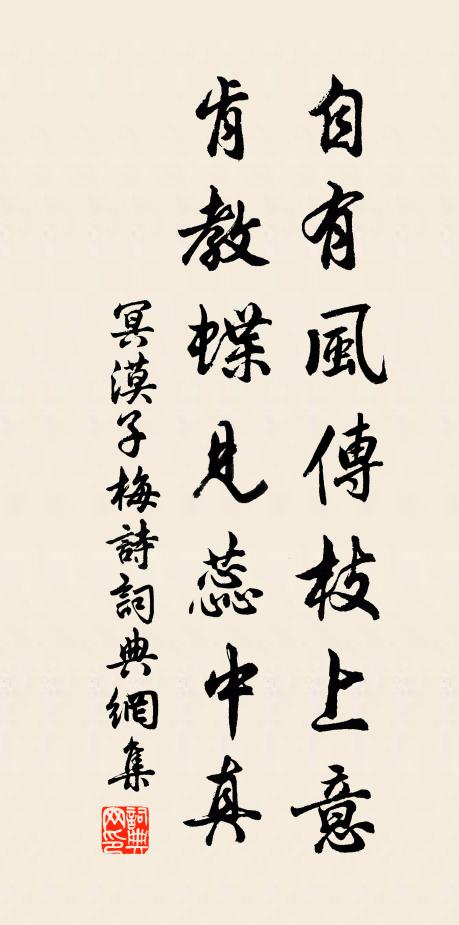 自有風傳枝上意
肯教蝶見蕊中真
冥漠子梅詩詞典網集
詞典網印